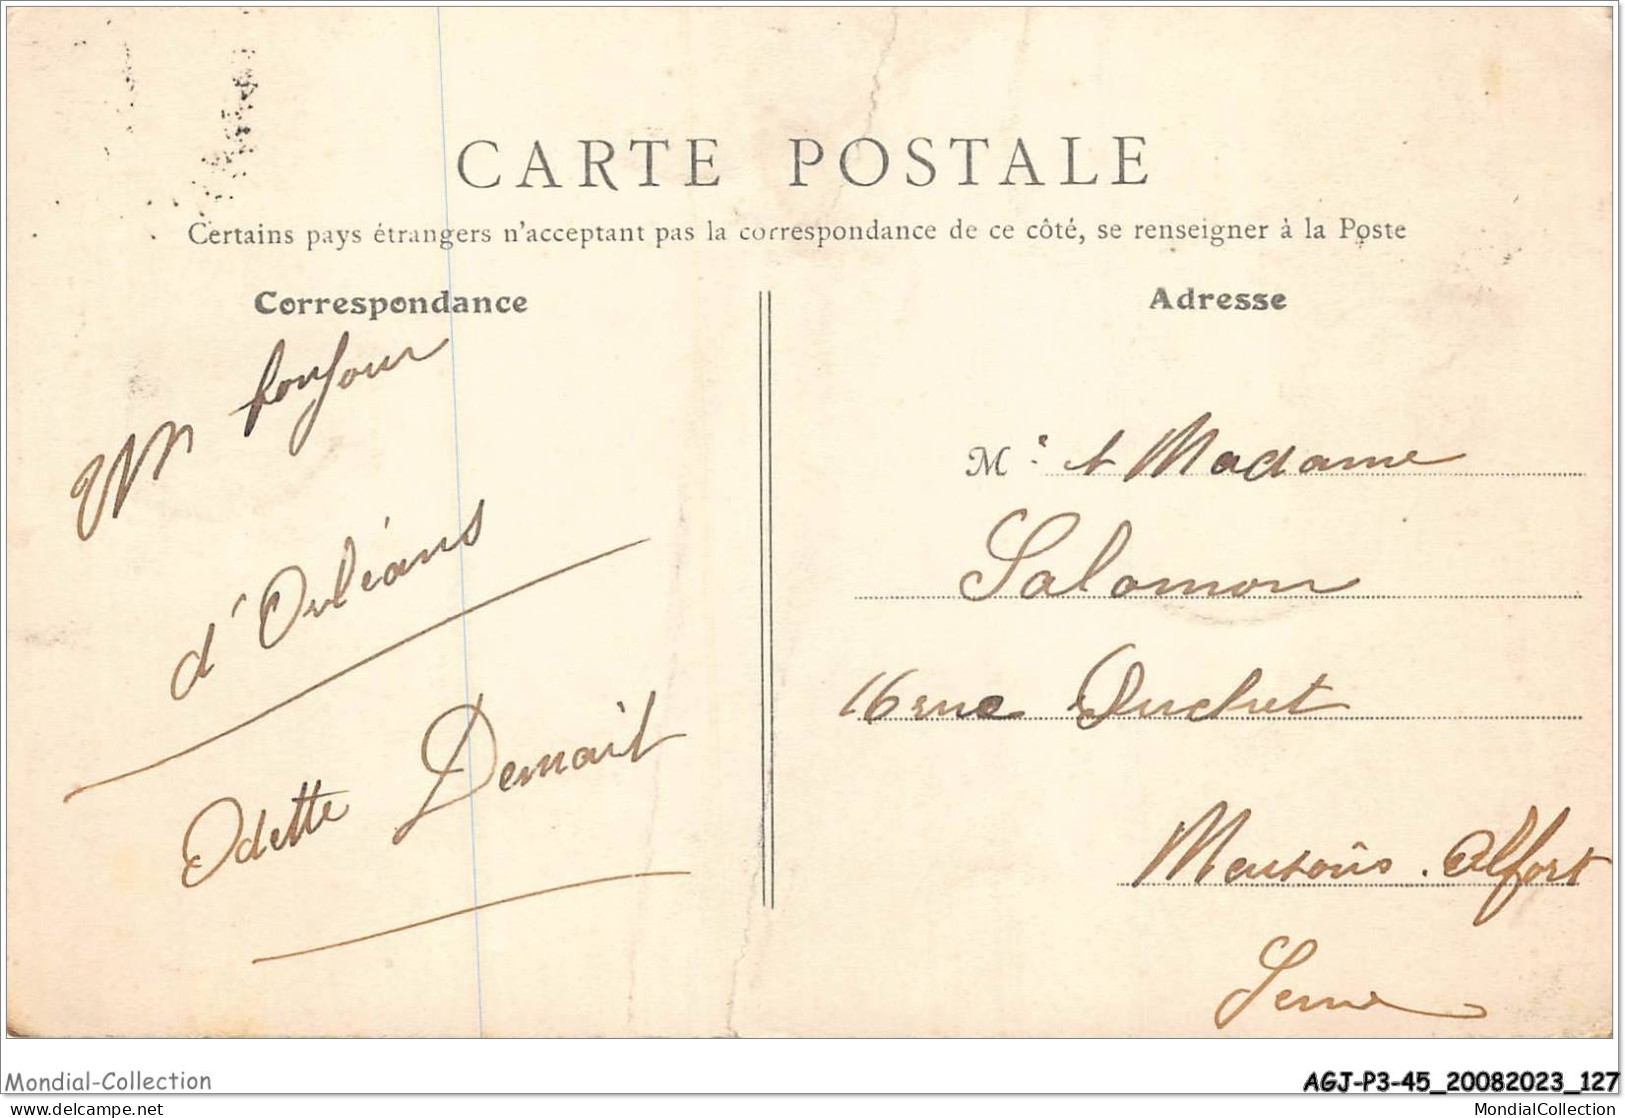 CARTE POSTALE
Certains pays étrangers n'acceptant pas la correspondance de ce côté, se renseigner à la Poste
Correspondance
Un bonjour
d'Orléans
Odette
Adresse
Mr et Madame
Salomon
16 rue
Maisons-Alfort
Seine
Mondial-Collection
AGJ-P3-45_20082023_127
mumu1215
MondialCollection